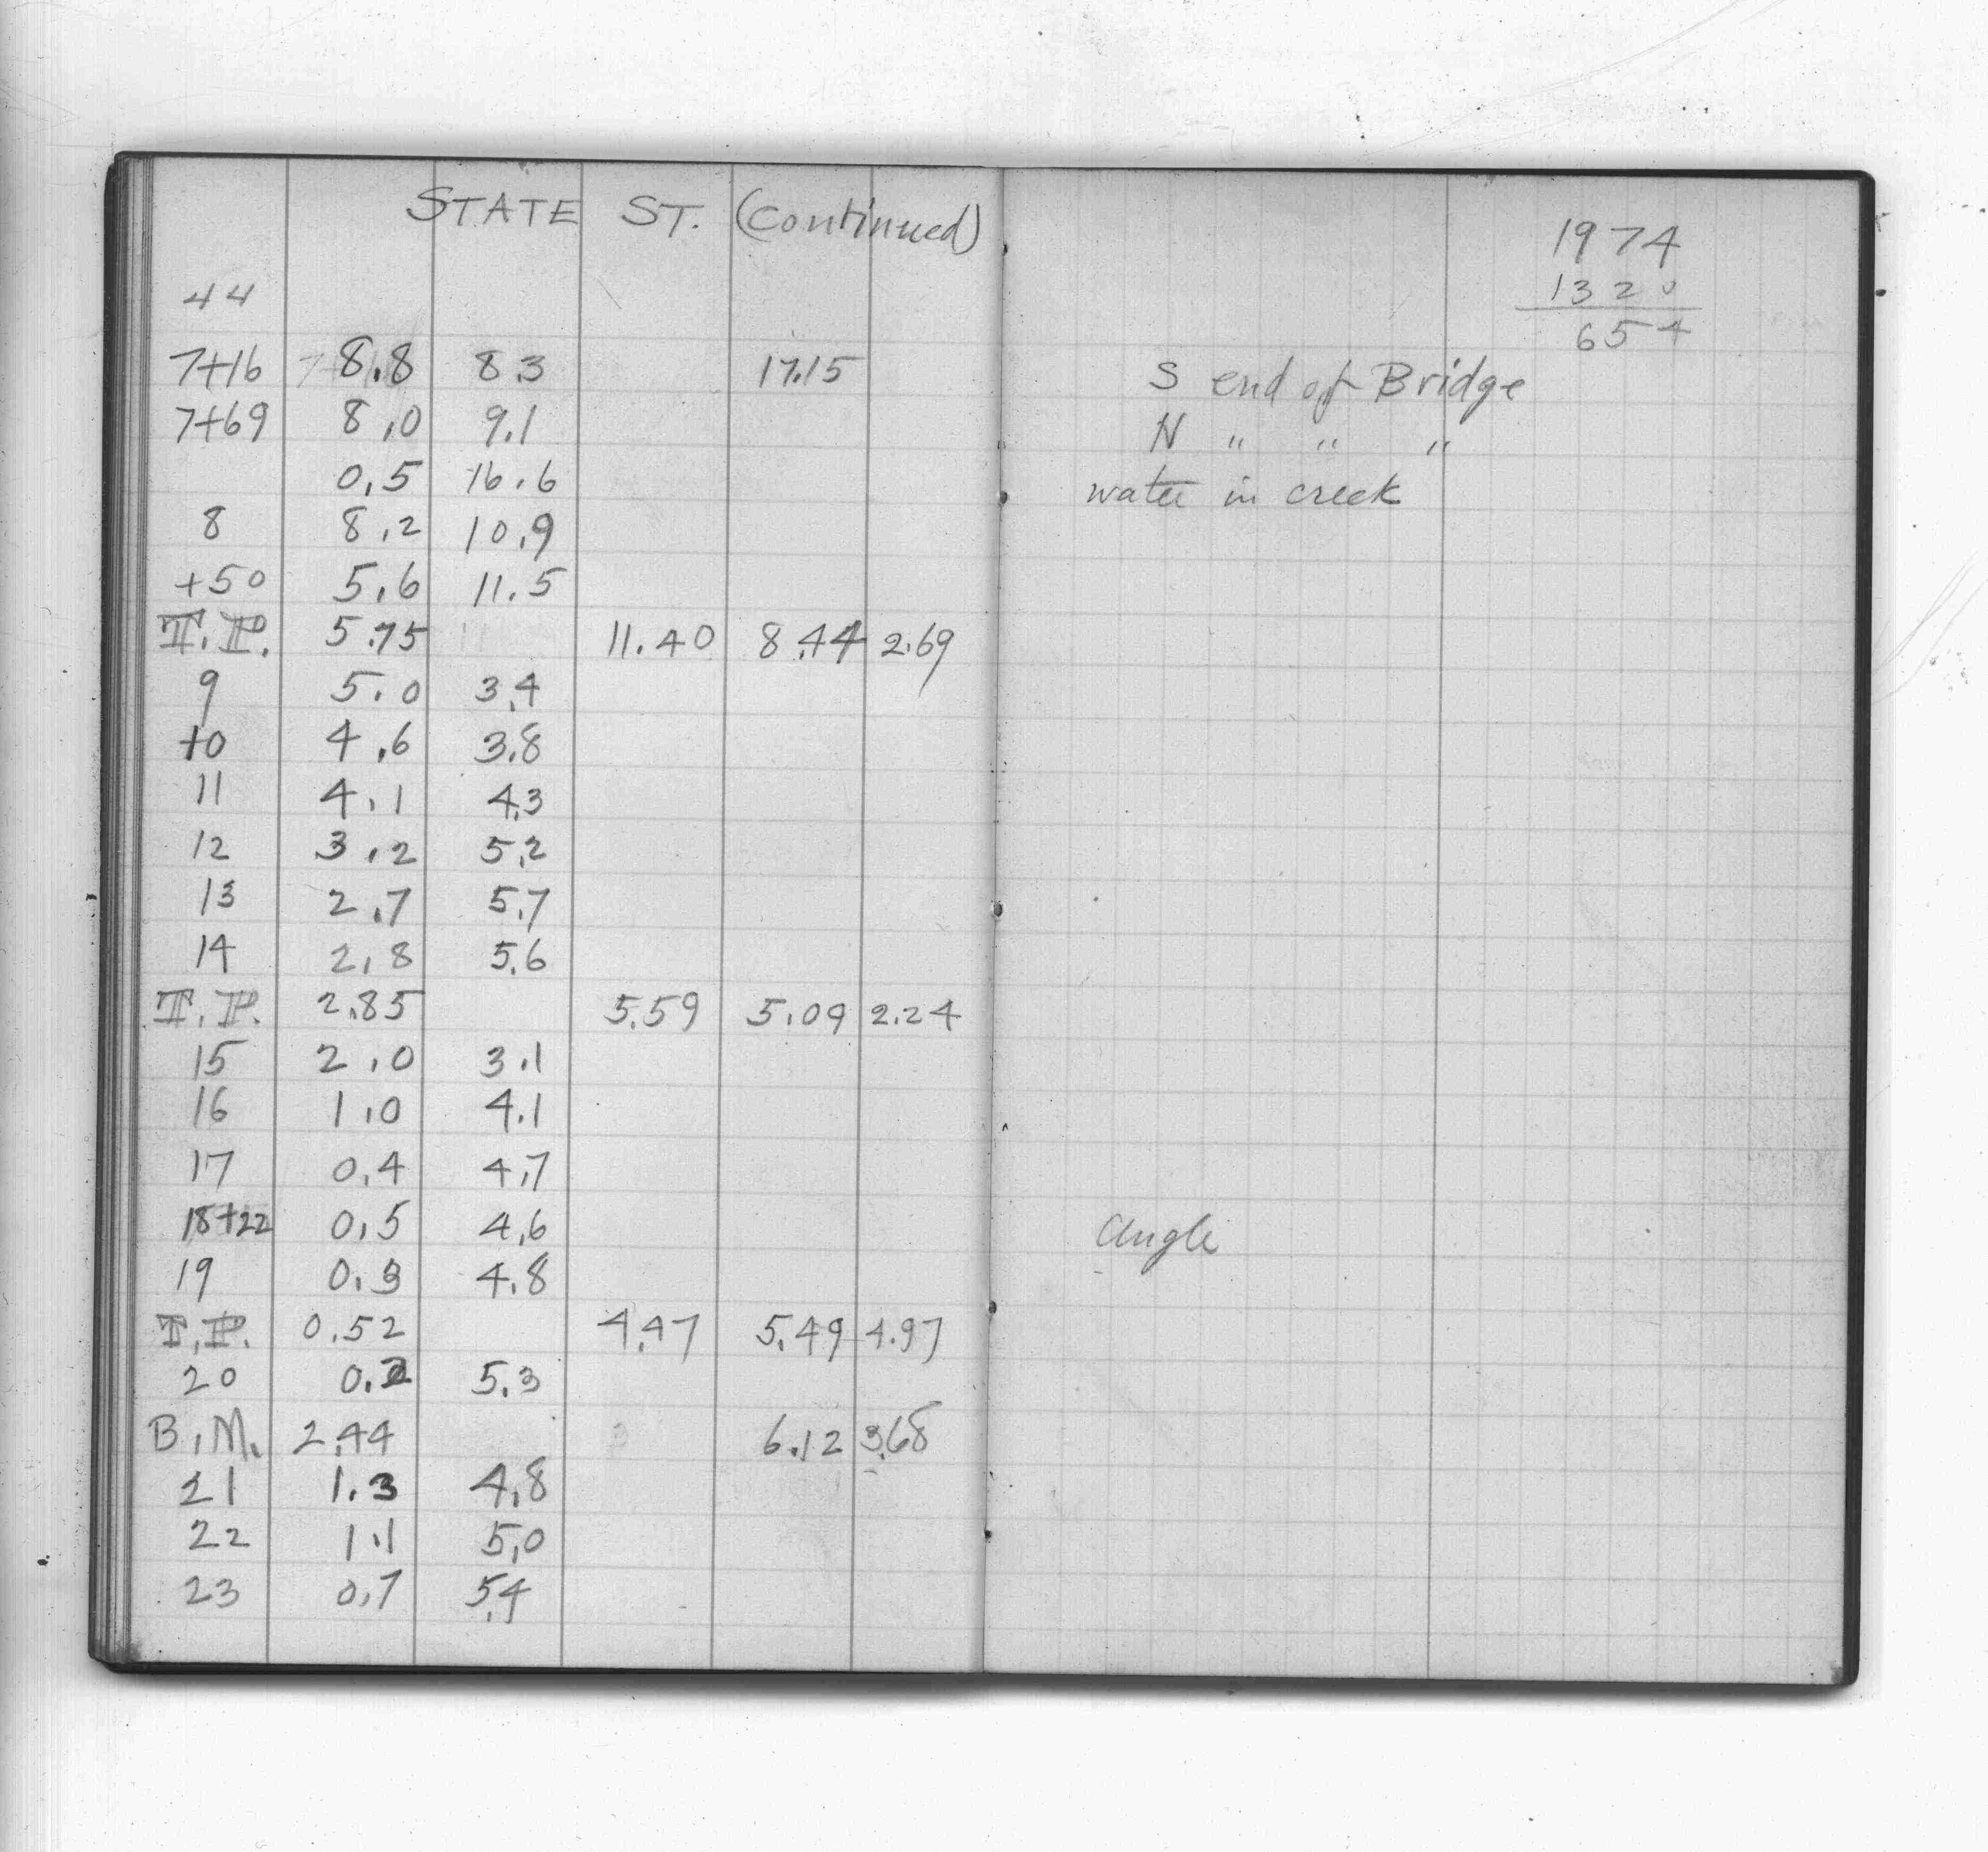 STATE ST. (Continued)
44
7+16 8.8 8.3 17.15
7+69 8.0 9.1
0.5 16.6
8 8.2 10.9
+50 5.6 11.5
T.P. 5.75 11.40 8.44 2.69
9 5.0 3.4
10 4.6 3.8
11 4.1 4.3
12 3.2 5.2
13 2.7 5.7
14 2.8 5.6
T.P. 2.85 5.59 5.09 2.24
15 2.0 3.1
16 1.0 4.1
17 0.4 4.7
18+22 0.5 4.6
19 0.3 4.8
T.P. 0.52 4.47 5.49 4.97
20 0.2 5.3
B.M. 2.44 6.12 3.68
21 1.3 4.8
22 1.1 5.0
23 0.7 5.4
1974
1320
654
S end of Bridge
N " " "
water in creek
Angle